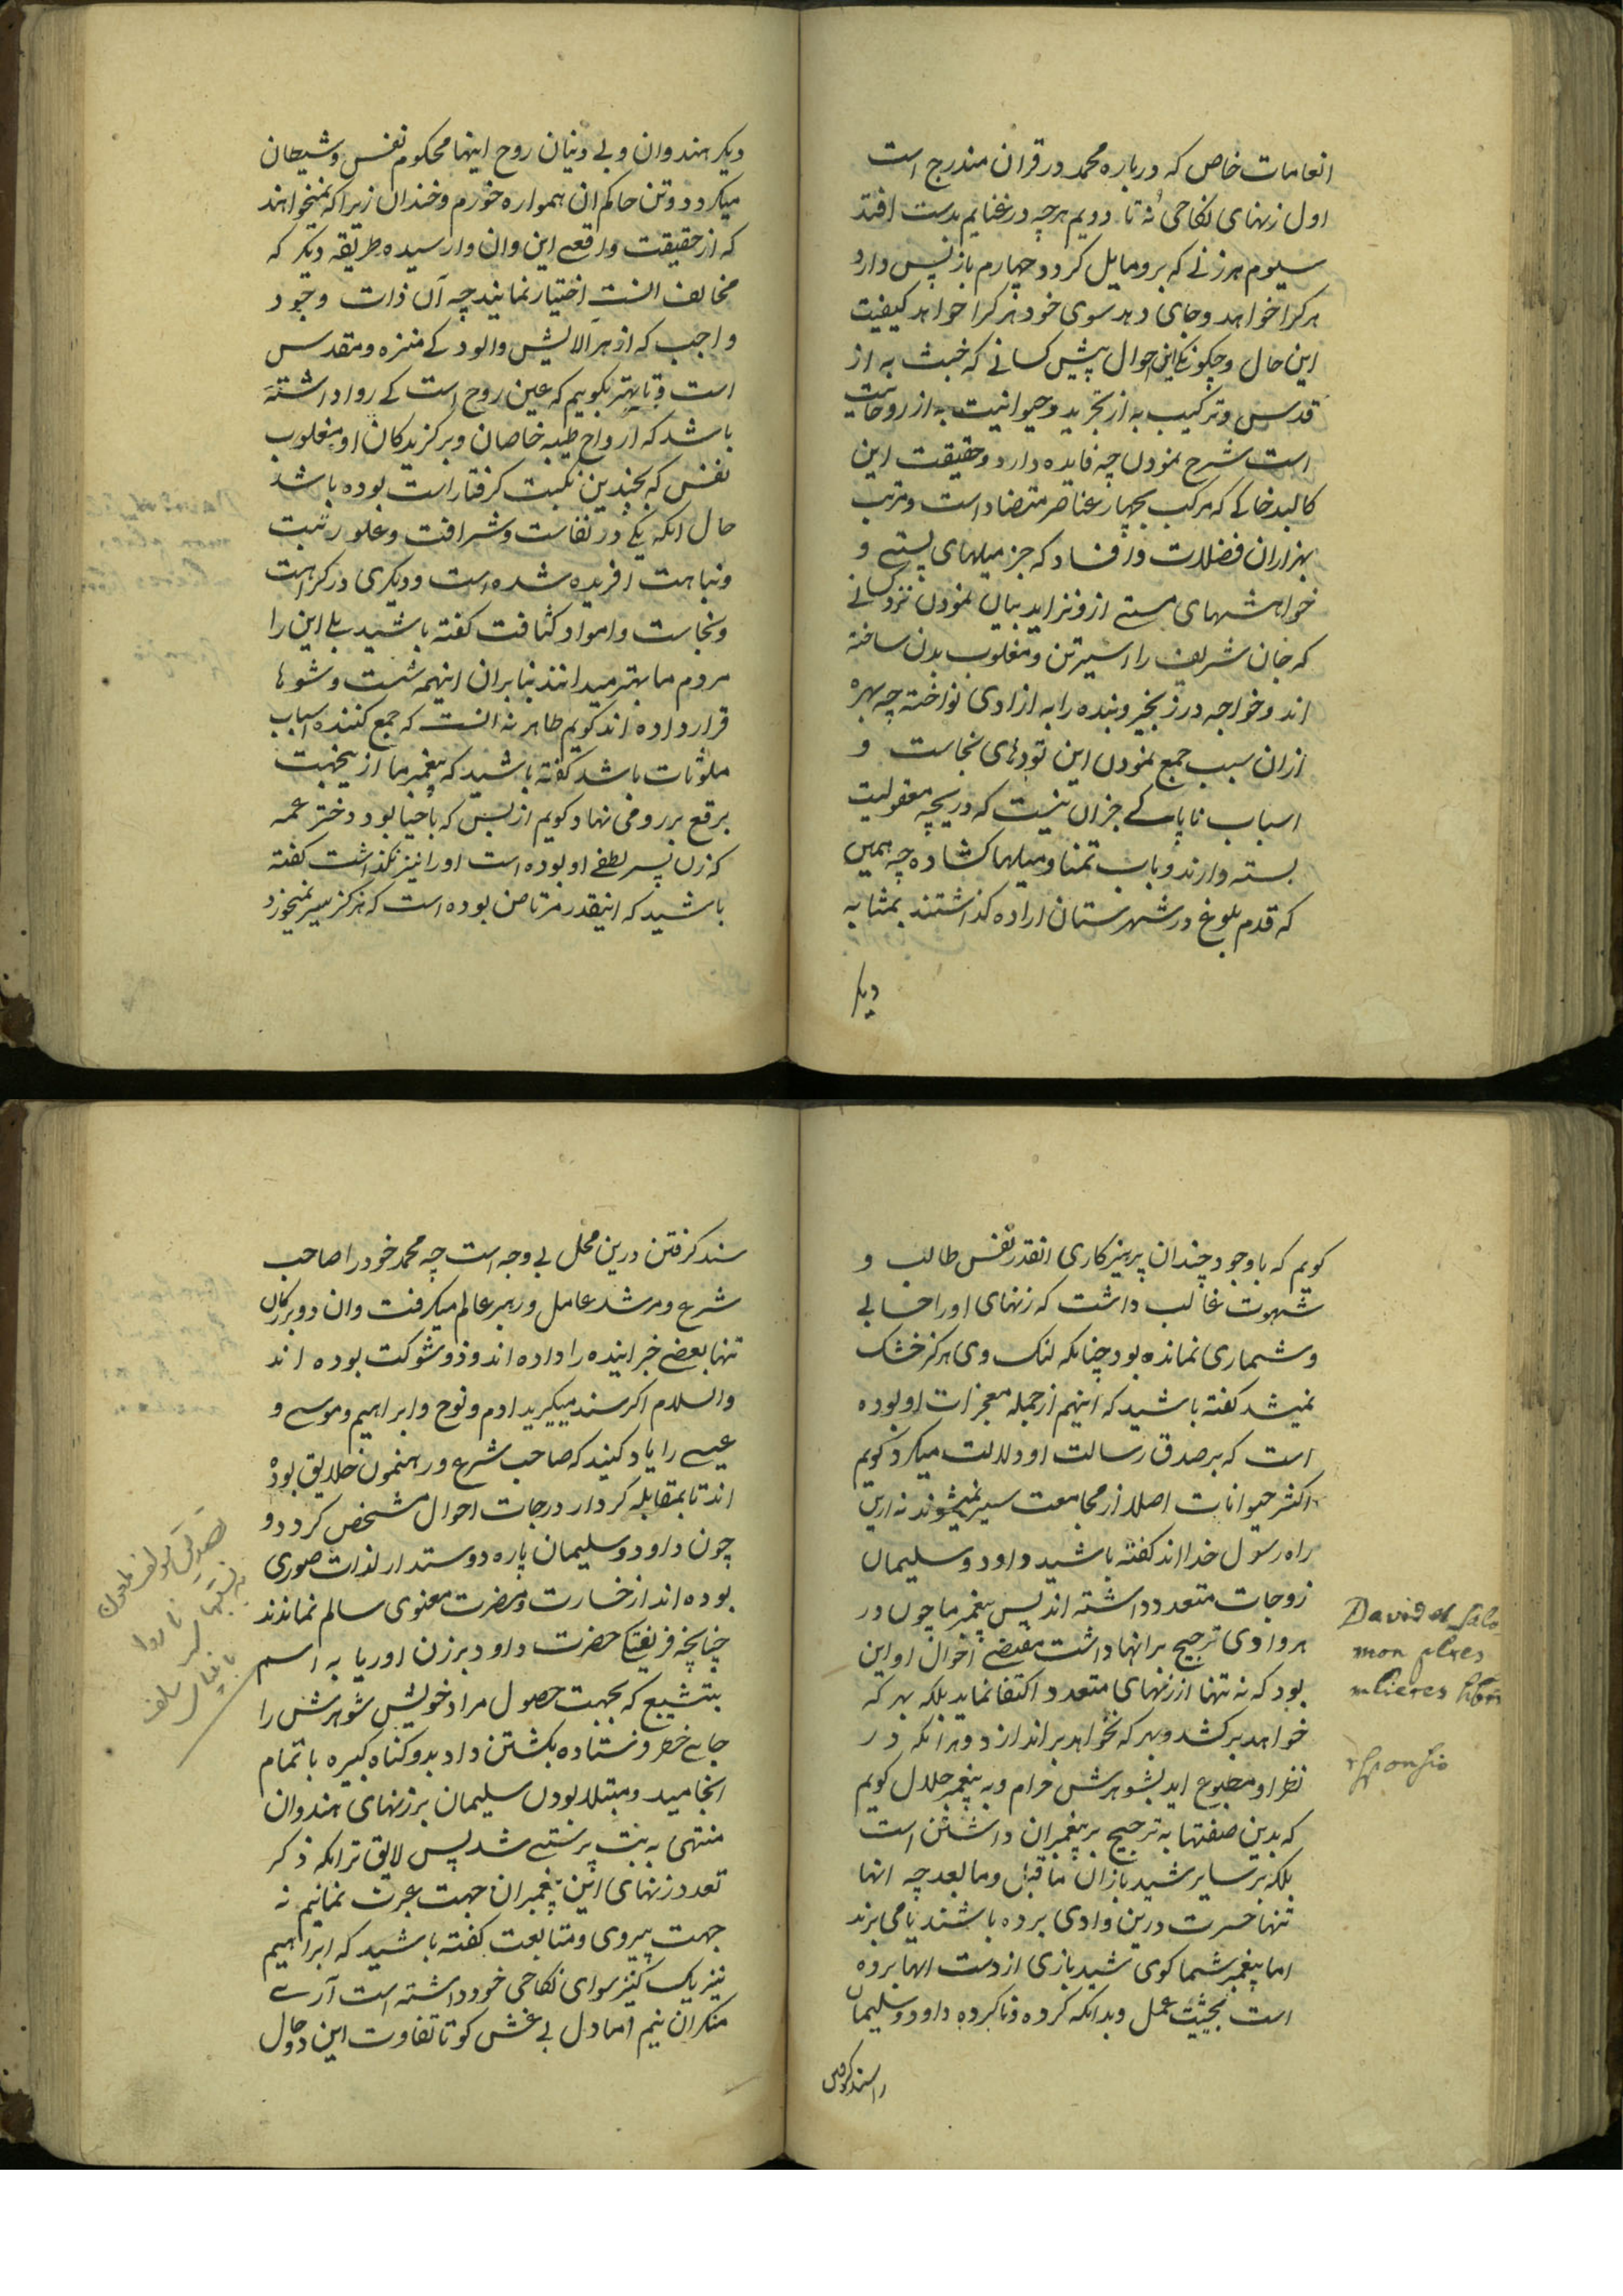 انعامات خاص که درباره محمد در قران مندرج است
اول زنهای نکاحی نه تا دویم هرچه در غنایم بدست افتد
سیوم هر زنی که برو مایل کردد چهارم باز پس دارد
هر کرا خواهد و جای دهد سوی خود هر کرا خواهد کیفیت
این حال و چکونکی این احوال پیش کسانی که خبث به از
قدس و ترکیب به از تجرید و حیوانیت به از روحانیت
است شرح نمودن چه فایده دارد و حقیقت این
کالبد خاکی که مرکب بچهار عناصر متضاد است و مرتب
بهزاران فضلات و افساد که جز میلهای پستی و
خواهشهای مستی ازو نزاید بیان نمودن نزد کسانی
که جان شریف را اسیر تن و مغلوب بدن ساخته
اند و خواجه در زنجیر و بنده را به ازادی نواخته چه بهره
ازان سبب جمع نمودن این تودهای نجاست و
اسباب ناپاکی جز ان نیست که دریچه معقولیت
بسته دارند و باب تمنا و میلها کشاده چه همین
که قدم بلوغ در شهرستان اراده کذاشتند بمثابه
دیکر
دیکر هندوان و بی دینان روح اینها محکوم نفس و شیطان
میکردد و تن حاکم ان همواره خورم و خندان زیرا که نمیخواهند
که از حقیقت واقعی این وان وارسیده طریقه دیکر که
مخالف انست اختیار نمایند چه آن ذات وجود
واجب که از هر الایش و الودکی منزه و مقدس
است و تا بهتر بکویم که عین روح است کی روا داشته
باشد که ارواح طیبه خاصان و برکزیدکان او مغلوب
نفس که بچندین نکبت کرفتار است بوده باشد
حال انکه یکی در نفاست و شرافت و علو رتبت
و نباهت افریده شده است و دیکری در کراهت
و نجاست و امواد کثافت کفته باشید بلی این را
مردم ما بهتر میدانند بنابران اینهمه شست و شوها
قرار داده اند کویم طاهر نه انست که جمع کننده اسباب
ملوثات باشد کفته باشید که پیغمبر ما ازینجهت
برقع بر رو می نهاد کویم از بس که باحیا بود دختر عمه
که زن پسر لطفی او بوده است او را نیز نکذاشت کفته
باشید که اینقدر مرتاض بوده است که هرکز سیر نمیخورد
کویم که باوجود چندان پرهیزکاری انقدر نفس طالب و
شهوت غالب داشت که زنهای او را حسابی
و شماری نمانده بود چنانکه لنک وی هرکز خشک
نمیشد کفته باشید که اینهم از جمله معجزات او بوده
است که بر صدق رسالت او دلالت میکرد کویم
اکثر حیوانات اصلا از مجامعت سیر نمیشوند نه ازین
راه رسول خدا اند کفته باشید داود و سلیمان
زوجات متعدد داشته اند پس پیغمبر ما چون در
هر وادی ترجیح بر انها داشت مقتضی احوال او این
بود که نه تنها از زنهای متعدد اکتفا نماید بلکه بهر که
خواهد برکشد و بهر که نخواهد براندازد و هر انکه در
نظر او مطبوع اید بشوهرش حرام و به پیغمبر حلال کویم
که بدین صفتها به ترجیح بر پیغمبران داشتن است
بلکه بر سایر شیدبازان ماقبل و مابعد چه انها
تنها حسرت درین وادی برده باشند یا می برند
اما پیغمبر شما کوی شیدبازی از دست انها برده
است بحیثیت عمل و بدانکه کرده و ناکرده داود و سلیمان
را سند کرفتن
David et Salo
mon plres
mlieres hbr
rsponsio
سند کرفتن درین محل بی وجه است چه محمد خود را صاحب
شرع و مرشد عامل و رهبر عالم میکرفت وان دو بزرکان
تنها بعضی خبر اینده را داده اند و ذوشوکت بوده اند
والسلام اکر سند میکیرید ادم و نوح و ابراهیم و موسی و
عیسی را یاد کنید که صاحب شرع و رهنمون خلایق بوده
اند تا بمقابله کردار درجات احوال مشخص کردد و
چون داود و سلیمان پاره دوستدار لذات صوری
بوده اند از خسارت و مضرت معنوی سالم نماندند
چنانچه فریفتکی حضرت داود بر زن اوریا به اسم
بتشیبع که بجهت حصول مراد خویش شوهرش را
جای خطر فرستاده بکشتن داد بدو کناه کبیره باتمام
انجامید و مبتلا بودن سلیمان بر زنهای هندوان
منتهی به بت پرستی شد پس لایق تر انکه ذکر
تعدد زنهای این پیغمبران جهت عبرت نمائیم نه
جهت پیروی و متابعت کفته باشید که ابراهیم
نیز یک کنیز سوای نکاحی خود داشته است آری
منکر ان نیم اما دل بی غش کو تا تفاوت این دو حال